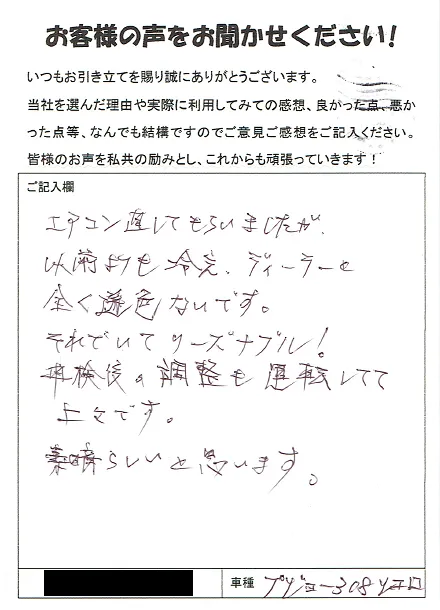 お客様の声をお聞かせください!
いつもお引き立てを賜り誠にありがとうございます。
当社を選んだ理由や実際に利用してみての感想、良かった点、悪か
った点等、なんでも結構ですのでご意見ご感想をご記入ください。
皆様のお声を私共の励みとし、これからも頑張っていきます!
ご記入欄
エアコン直してもらいましたが、
以前よりも冷え、ディーラーと
全く遜色ないです。
それでいてリーズナブル!
車検後の調整も運転してて
上々です。
素晴らしいと思います。
車種
プジョー308